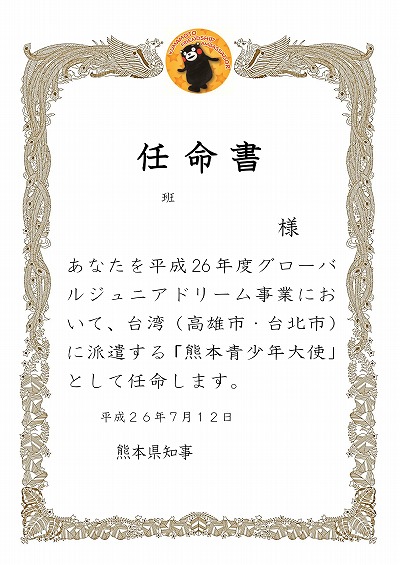 KUMAMOTO FRIENDSHIP AMBASSADOR
任命書
班
様
あなたを平成26年度グローバ
ルジュニアドリーム事業にお
いて、台湾(高雄市・台北市)
に派遣する「熊本青少年大使」
として任命します。
平成26年7月12日
熊本県知事